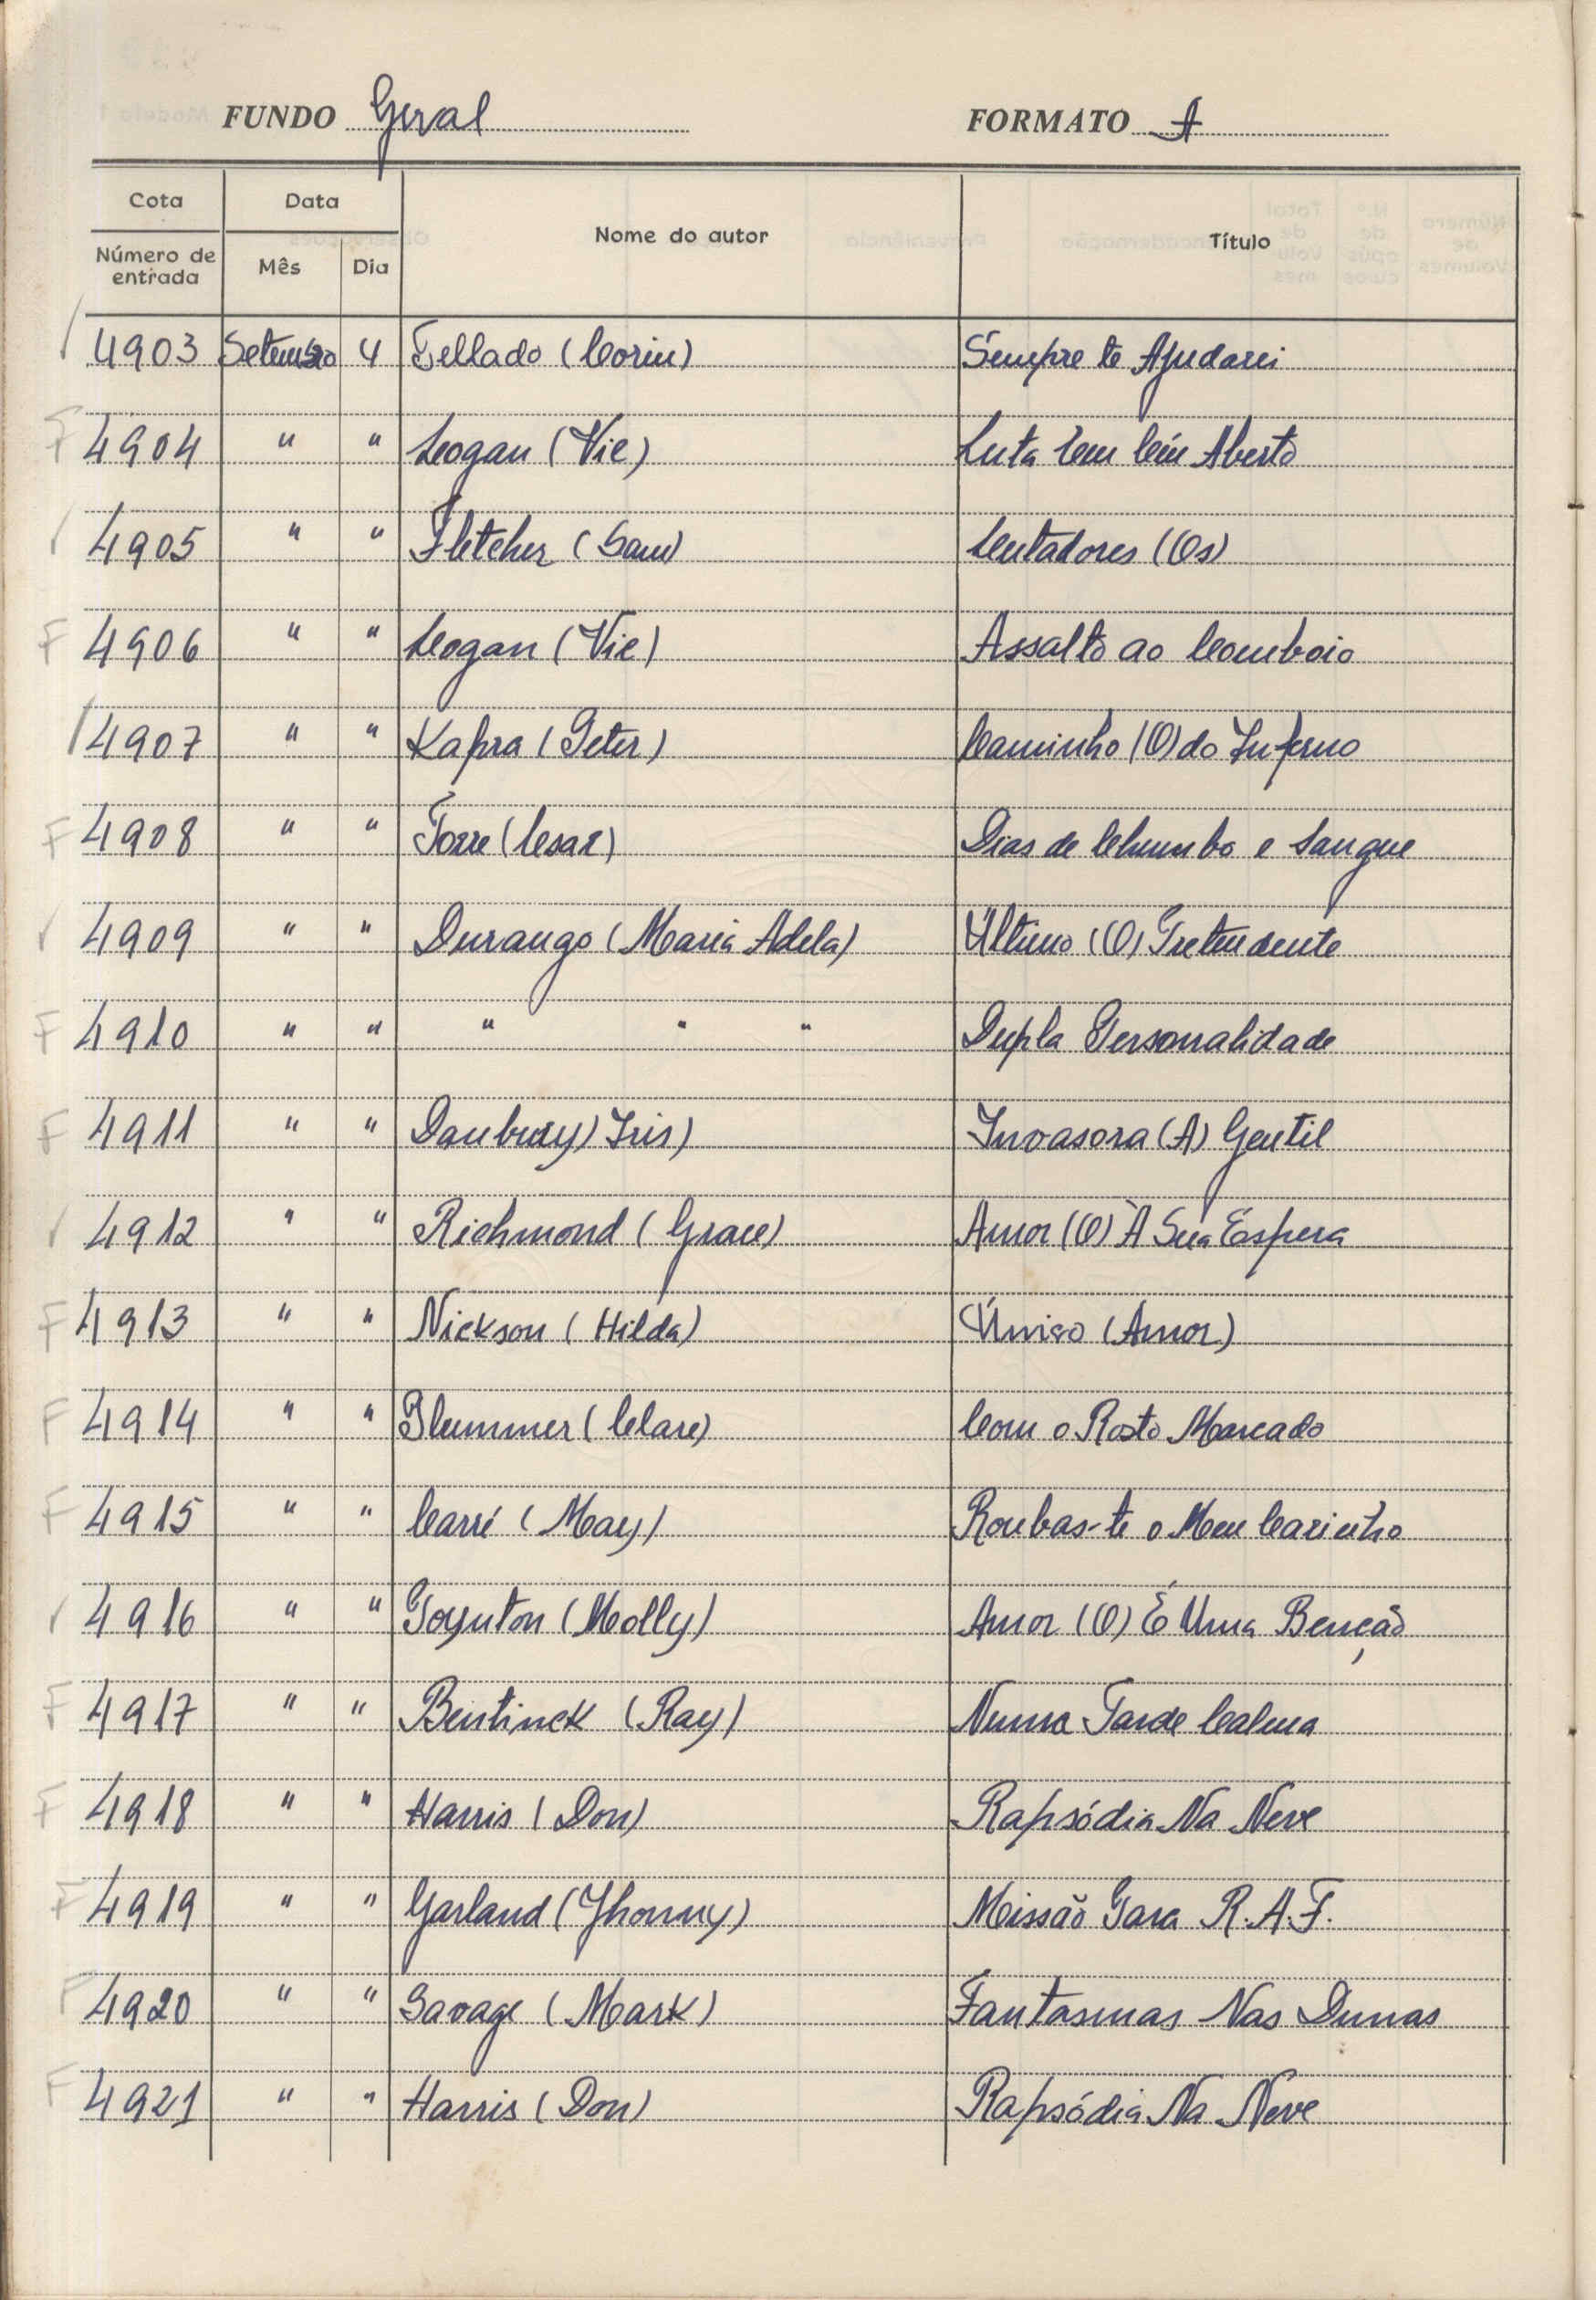 FUNDO Geral FORMATO A
Cota Data Nome do autor Título
Número de entrada Mês Dia
4903 Setembro 4 Tellado (Corin) Sempre te Ajudarei
F 4904 " " Logan (Vic) Luta em Céu Aberto
4905 " " Fletcher (Sam) (Os)
F 4906 " " Logan (Vic) Assalto ao Comboio
4907 " " Kapra (Peter) Caminho (O) do Inferno
F 4908 " " Torre (Cesar) Dias de Chumbo e Sangue
4909 " " Durango (Maria Adela) Último (O) Pretendente
F 4910 " " " " " Dupla Personalidade
F 4911 " " Danbury) Iris) Invasora (A) Gentil
4912 " " Richmond (Grace) Amor (O) À Sua Espera
F 4913 " " Nickson (Hilda) Único (Amor)
F 4914 " " Plummer (Clare) Com o Rosto Marcado
F 4915 " " Carré (May) Roubas-te o Meu Carinho
4916 " " Poynton (Molly) Amor (O) É Uma Benção
F 4917 " " Bentinck (Ray) Numa Tarde Calma
F 4918 " " Harris (Don) Rapsódia Na Neve
F 4919 " " Garland (Jhonny) Missão Para R.A.F.
F 4920 " " Savage (Mark) Fantasmas Nas Dunas
F 4921 " " Harris (Don) Rapsódia Na Neve